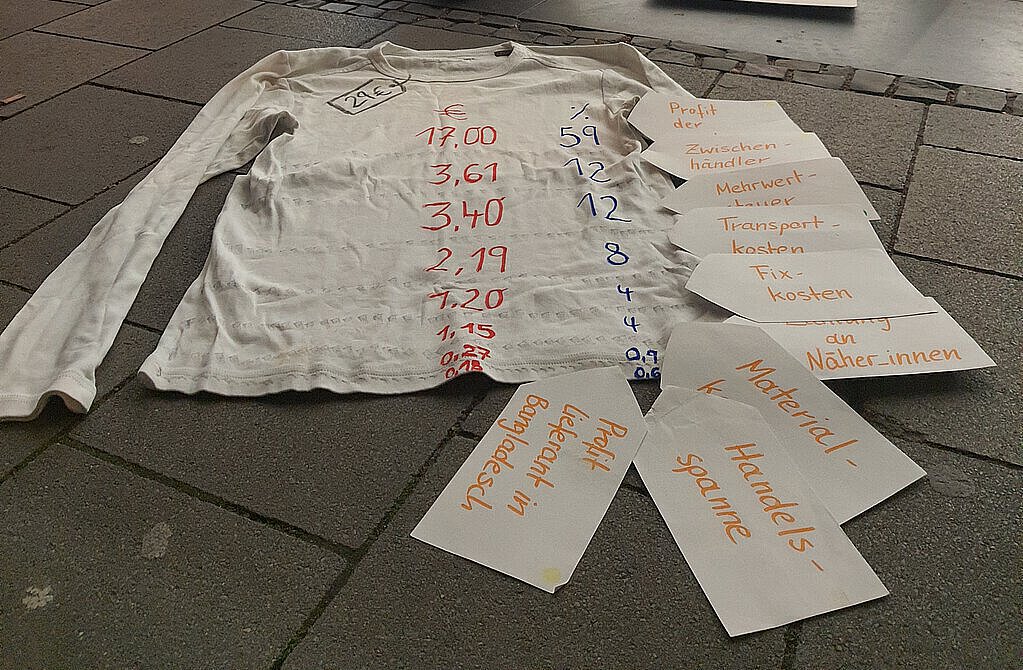 29€*
€ %
17,00 59
3,61 12
3,40 12
2,19 8
1,20 4
1,15 4
0,27 0,9
0,18 0,6
Profit
der
Zwischen-
händler
Mehrwert-
steuer
Transport-
kosten
Fix-
kosten
an
Näher_innen
Material-
k
Handels-
spanne
Profit
Lieferant in
Bangladesch